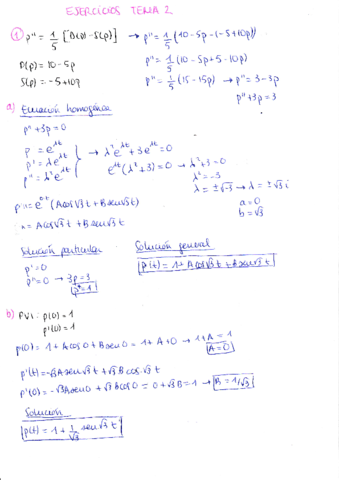 EJERCICIOS TEMA 2
① p'' = 1/5 [D(p) - S(p)] → p'' = 1/5 (10 - 5p - (-5 + 10p))
D(p) = 10 - 5p
p'' = 1/5 (10 - 5p + 5 - 10p)
S(p) = -5 + 10p
p'' = 1/5 (15 - 15p) → p'' = 3 - 3p
p'' + 3p = 3
a) Ecuación homogénea
p'' + 3p = 0
p = e^λt
p' = λe^λt
p'' = λ²e^λt
→ λ²e^λt + 3e^λt = 0
e^λt (λ² + 3) = 0 → λ² + 3 = 0
λ² = -3
λ = ±√-3 → λ = ±√3 i
a = 0
b = √3
= e^0t (A cos√3 t + B sen√3 t)
= A cos√3 t + B sen√3 t
Solución particular
p' = 0
p'' = 0 → 3p = 3
p* = 1
Solución general
p(t) = 1 + A cos√3 t + B sen√3 t
b) PVI: p(0) = 1
p'(0) = 1
p(0) = 1 + A cos 0 + B sen 0 = 1 + A + 0 → 1 + A = 1
A = 0
p'(t) = -√3 A sen√3 t + √3 B cos √3 t
p'(0) = -√3 A sen 0 + √3 B cos 0 = 0 + √3 B = 1 → B = 1/√3
Solución
p(t) = 1 + 1/√3 sen√3 t